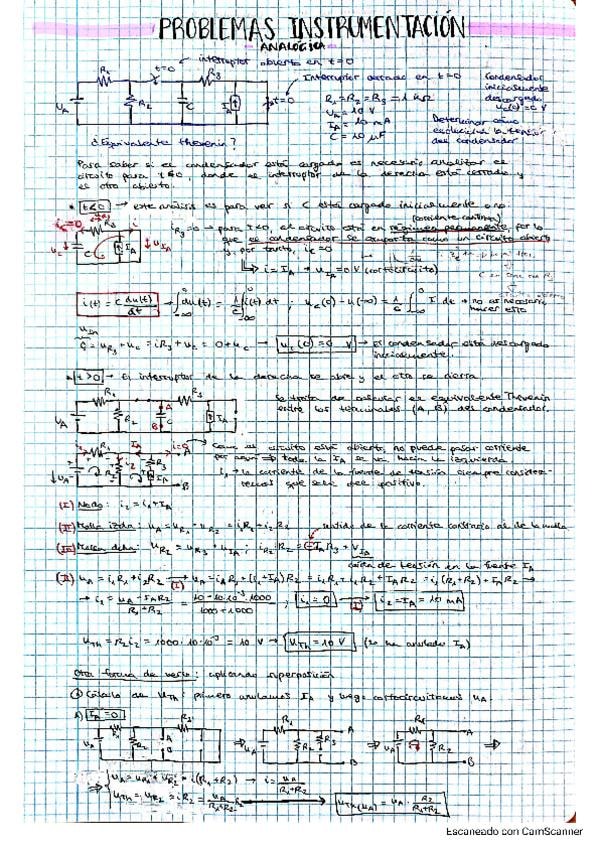 PROBLEMAS INSTRUMENTACIÓN
ANALÓGICA
interruptor abierto en t=0
R1 t=0 R3
Interruptor cerrado en t=0
Condensador
inicialmente
descargado
uc(0)=0
UA R2 C IA t=0
R1=R2=R3=1 kΩ
UA=10 V
IA=10 mA
C=10 μF
Determinar cómo
evoluciona la tensión
del condensador
¿Equivalente thevenin?
Para saber si el condensador está cargado es necesario analizar el
circuito para t<0, donde el interruptor de la derecha está cerrado y
el otro abierto.
t<0 → este análisis es para ver si C está cargado inicialmente o no
(corriente continua)
ic=0 R3 i
iR3=0 → para t<0, el circuito está en régimen permanente, por lo
que el condensador se comporta como un circuito abierto
y, por tanto, ic=0
uc C IA uIA
→ i=IA, uIA=0 V (cortocircuito)
i(t)=C du(t)/dt → ∫du(t)=1/C ∫i(t) dt ; uc(0)-u(-∞)=1/C ∫ I dt → no es necesario
hacer esto
uIA = uR3+uc = iR3+uc = 0+uc → uc(0)=0 V → El condensador está descargado
inicialmente.
t>0 → El interruptor de la derecha se abre y el otro se cierra.
R1 A R3
UA R2 C IA
B
Se trata de calcular el equivalente Thevenin
entre los terminales (A, B) del condensador.
i1 R1 IA i=0 A
Como el circuito está abierto, no puede pasar corriente
por → toda la IA se va hacia la izquierda.
i1 → la corriente de la fuente de tensión siempre considera-
remos que sale del positivo.
UA R2 R3 B
(I) Nodo: i2=i1+IA
(II) Malla izda: uA=uR1+uR2=i1R1+i2R2
sentido de la corriente contrario al de la malla
(III) Malla dcha: uR2=uR3+uIA; i2R2=(-)IAR3+VIA
caída de tensión en la fuente IA
(II) uA=i1R1+i2R2 → (I) uA=i1R1+(i1+IA)R2=i1R1+i1R2+IAR2=i1(R1+R2)+IAR2 →
→ i1=uA-IAR2/R1+R2=10-10·10⁻³·1000/1000+1000; i1=0 → (I) i2=IA=10 mA
uTH=R2i2=1000·10·10⁻³=10 V → uTH=10 V (se ha anulado IA)
Otra forma de verlo: aplicando superposición
① Cálculo de uTH: primero anulamos IA y luego cortocircuitamos uA.
A) IA=0
R1 R3 A
UA R2 B
⇒ R1 A
UA R2 R3 B
⇒ R1 A
UA R2 B ⇒
⇒ uA=uR1+uR2=i(R1+R2) → i=uA/R1+R2
uTH=uR2=iR2=uA/R1+R2 R2 → uTH(uA)=uA·R2/R1+R2
Escaneado con CamScanner